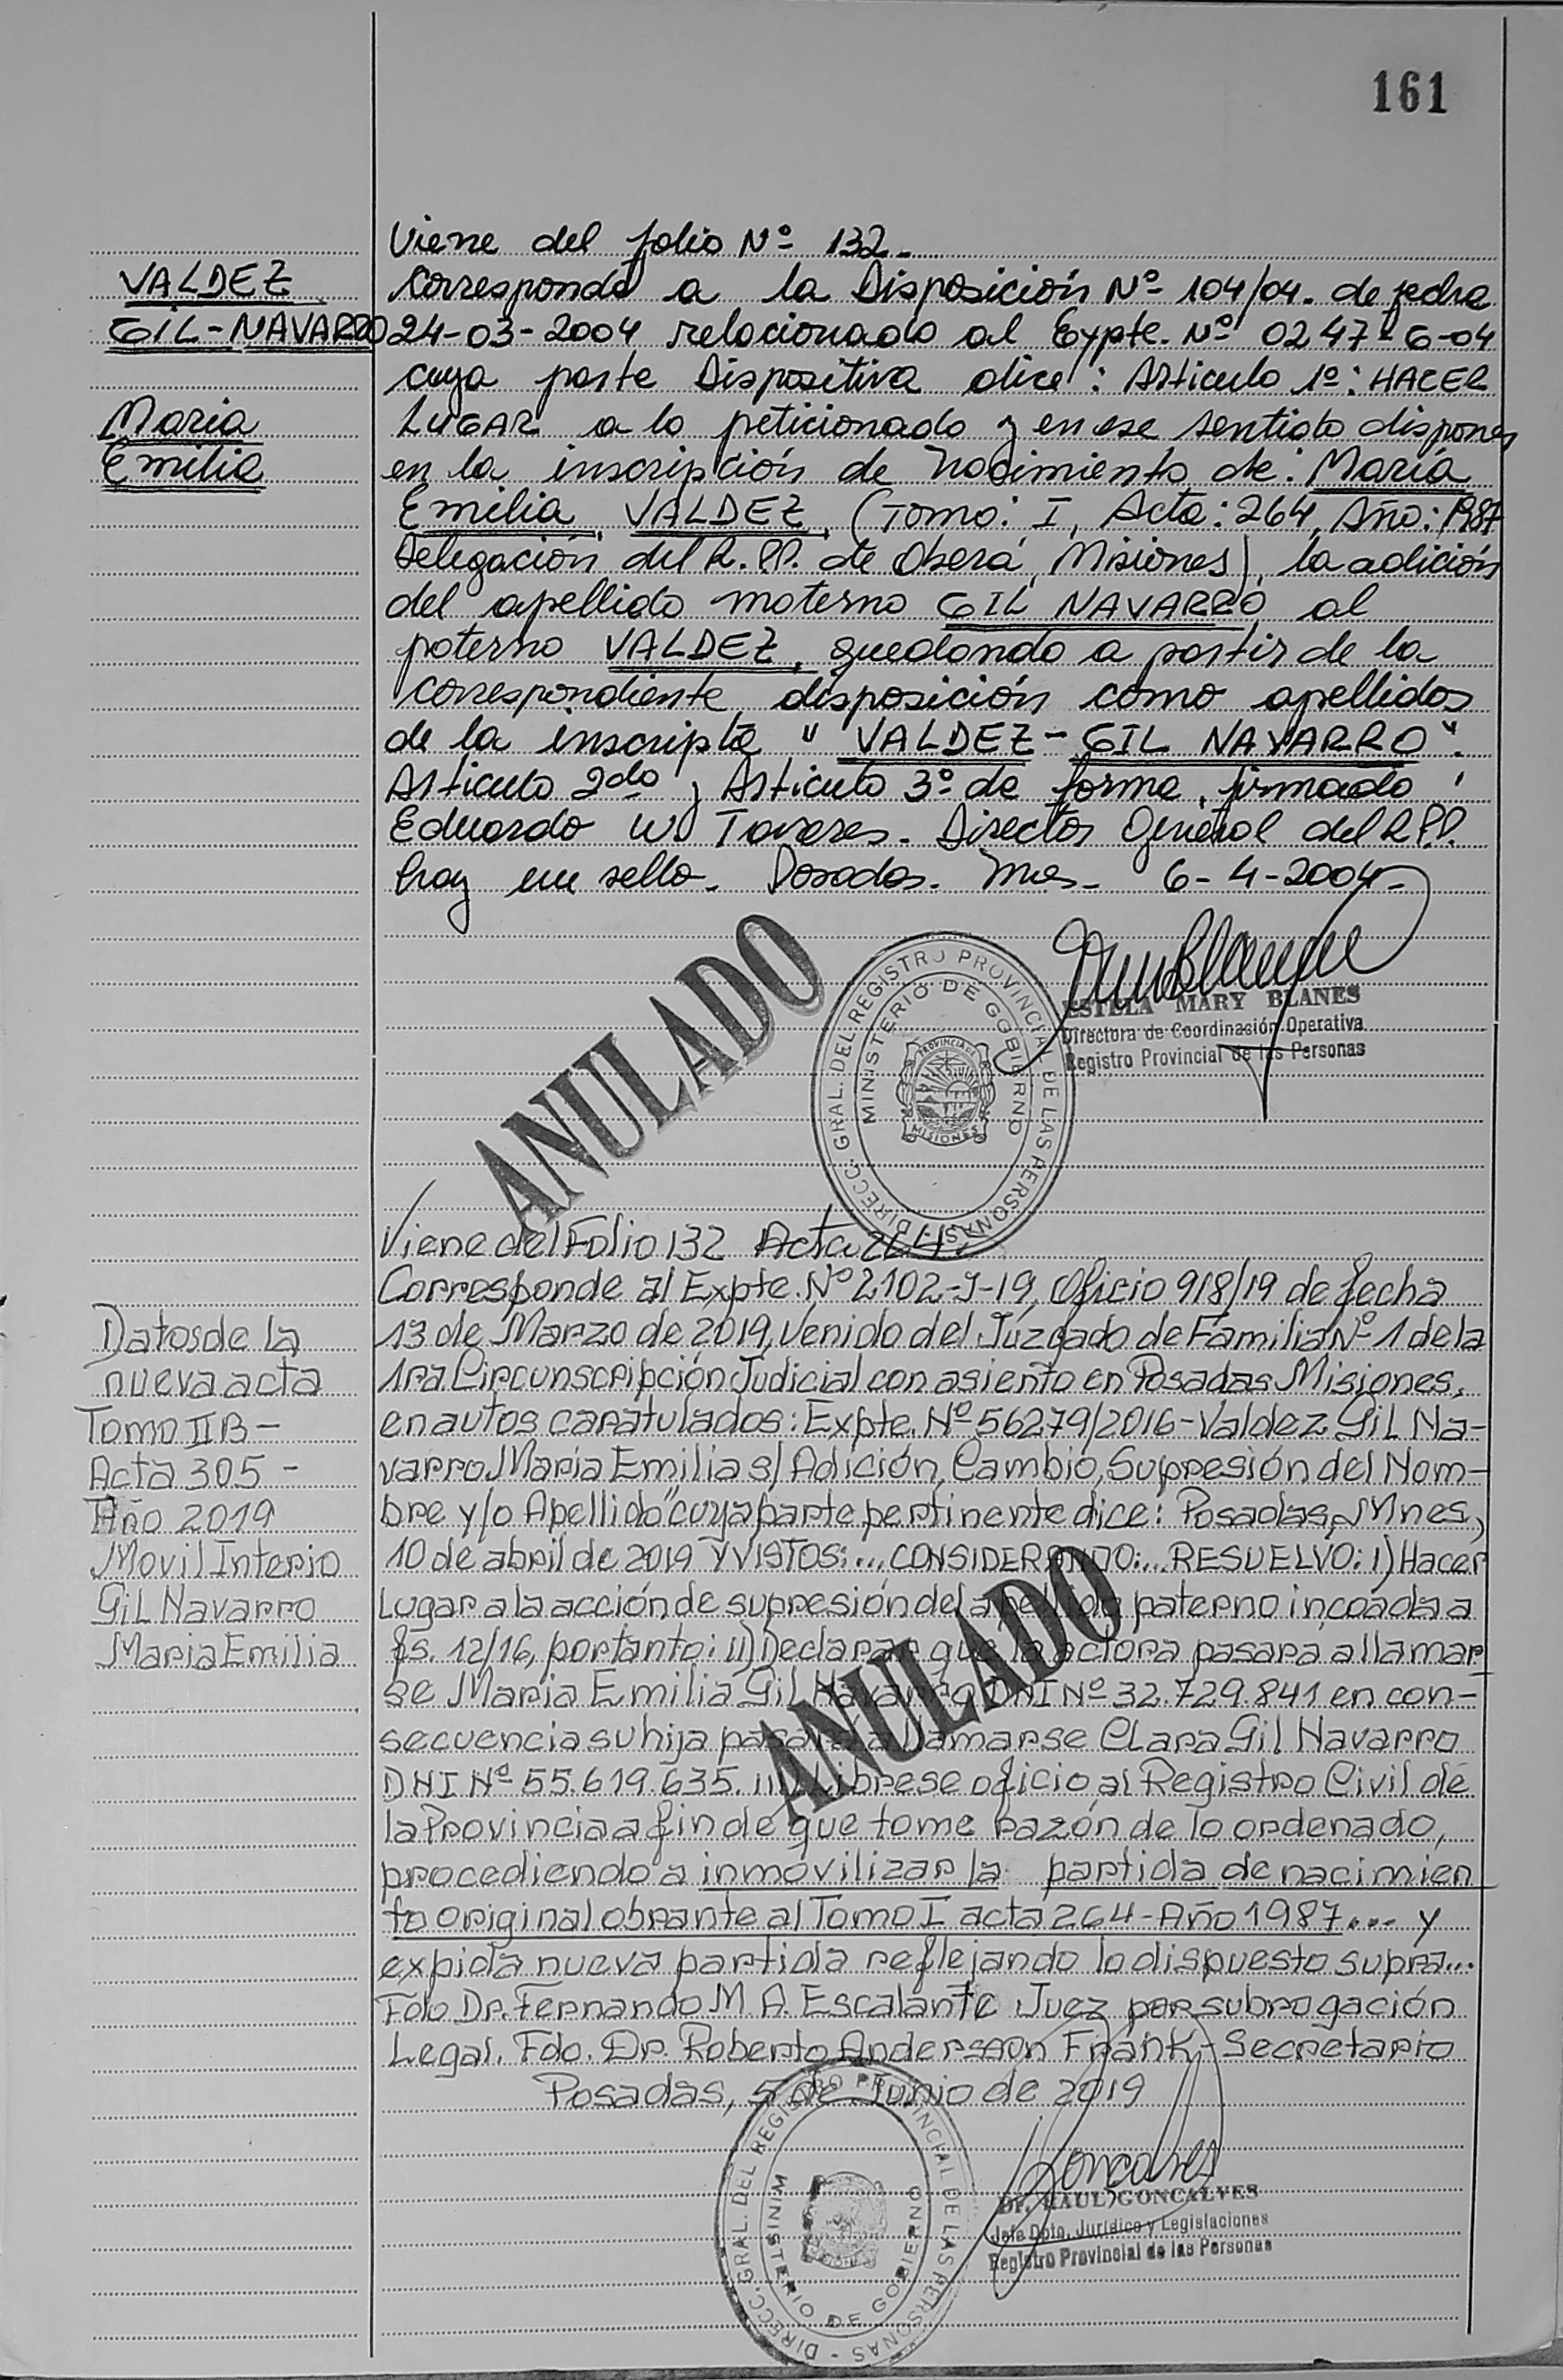 161
Viene del folio Nº 132.-
VALDEZ
Corresponde a la Disposición Nº 104/04. de fecha
GIL-NAVARRO
24-03-2004 relacionado al Expte. Nº 0247-G-04
cuya parte Dispositiva dice: Artículo 1º: HACER
Maria
LUGAR a lo peticionado y en ese sentido disponer
Emilia
en la inscripción de nacimiento de: María
Emilia VALDEZ, (Tomo: I, Acta: 264, Año: 1987
Delegación del R.PP. de Oberá, Misiones), la adición
del apellido materno GIL NAVARRO al
paterno VALDEZ, quedando a partir de la
correspondiente disposición como apellidos
de la inscripta "VALDEZ-GIL NAVARRO".
Artículo 2do y Artículo 3º de forma, firmado
Eduardo W. Tavares. Director General del R.P.P.
hay un sello. Posadas. Mnes- 6-4-2004-
ANULADO
DIRECC. GRAL. DEL REGISTRO PROVINCIAL DE LAS PERSONAS
MINISTERIO DE GOBIERNO
PROVINCIA DE
MISIONES
ESTELA MARY BLANES
Directora de Coordinación Operativa
Registro Provincial de las Personas
Viene del Folio 132 Acta 264.
Corresponde al Expte. Nº 2102-J-19, Oficio 918/19 de fecha
Datos de la
13 de Marzo de 2019, venido del Juzgado de Familia Nº 1 de la
nueva acta
1ra Circunscripción Judicial con asiento en Posadas Misiones,
Tomo II B -
en autos caratulados: Expte. Nº 56279/2016-Valdez Gil Na-
Acta 305 -
varro Maria Emilia s/ Adición, Cambio, Supresión del Nom-
Año 2019
bre y/o Apellido" cuya parte pertinente dice: Posadas, Mnes,
Movil Interio
10 de abril de 2019 Y VISTOS:... CONSIDERANDO:... RESUELVO: I) Hacer
Gil Navarro
Lugar a la acción de supresión del apellido paterno incoada a
Maria Emilia
fs. 12/16, por tanto: II) Declarar que la actora pasará a llamar
se Maria Emilia Gil Navarro DNI Nº 32.729.841 en con-
secuencia su hija pasará a llamarse Clara Gil Navarro
DNI Nº 55.619.635. III) Líbrese oficio al Registro Civil de
la Provincia a fin de que tome razón de lo ordenado,
procediendo a inmovilizar la partida de nacimien
to original obrante al Tomo I acta 264-Año 1987... y
expida nueva partida reflejando lo dispuesto supra...
Fdo Dr. Fernando M. A. Escalante Juez por subrogación
Legal. Fdo. Dr. Roberto Andersson Frank-Secretario
Posadas, 5 de Junio de 2019
ANULADO
DIRECC. GRAL. DEL REGISTRO PROVINCIAL DE LAS PERSONAS
MINISTERIO DE GOBIERNO
Dr. RAUL GONCALVES
Jefe Dpto. Jurídico y Legislaciones
Registro Provincial de las Personas